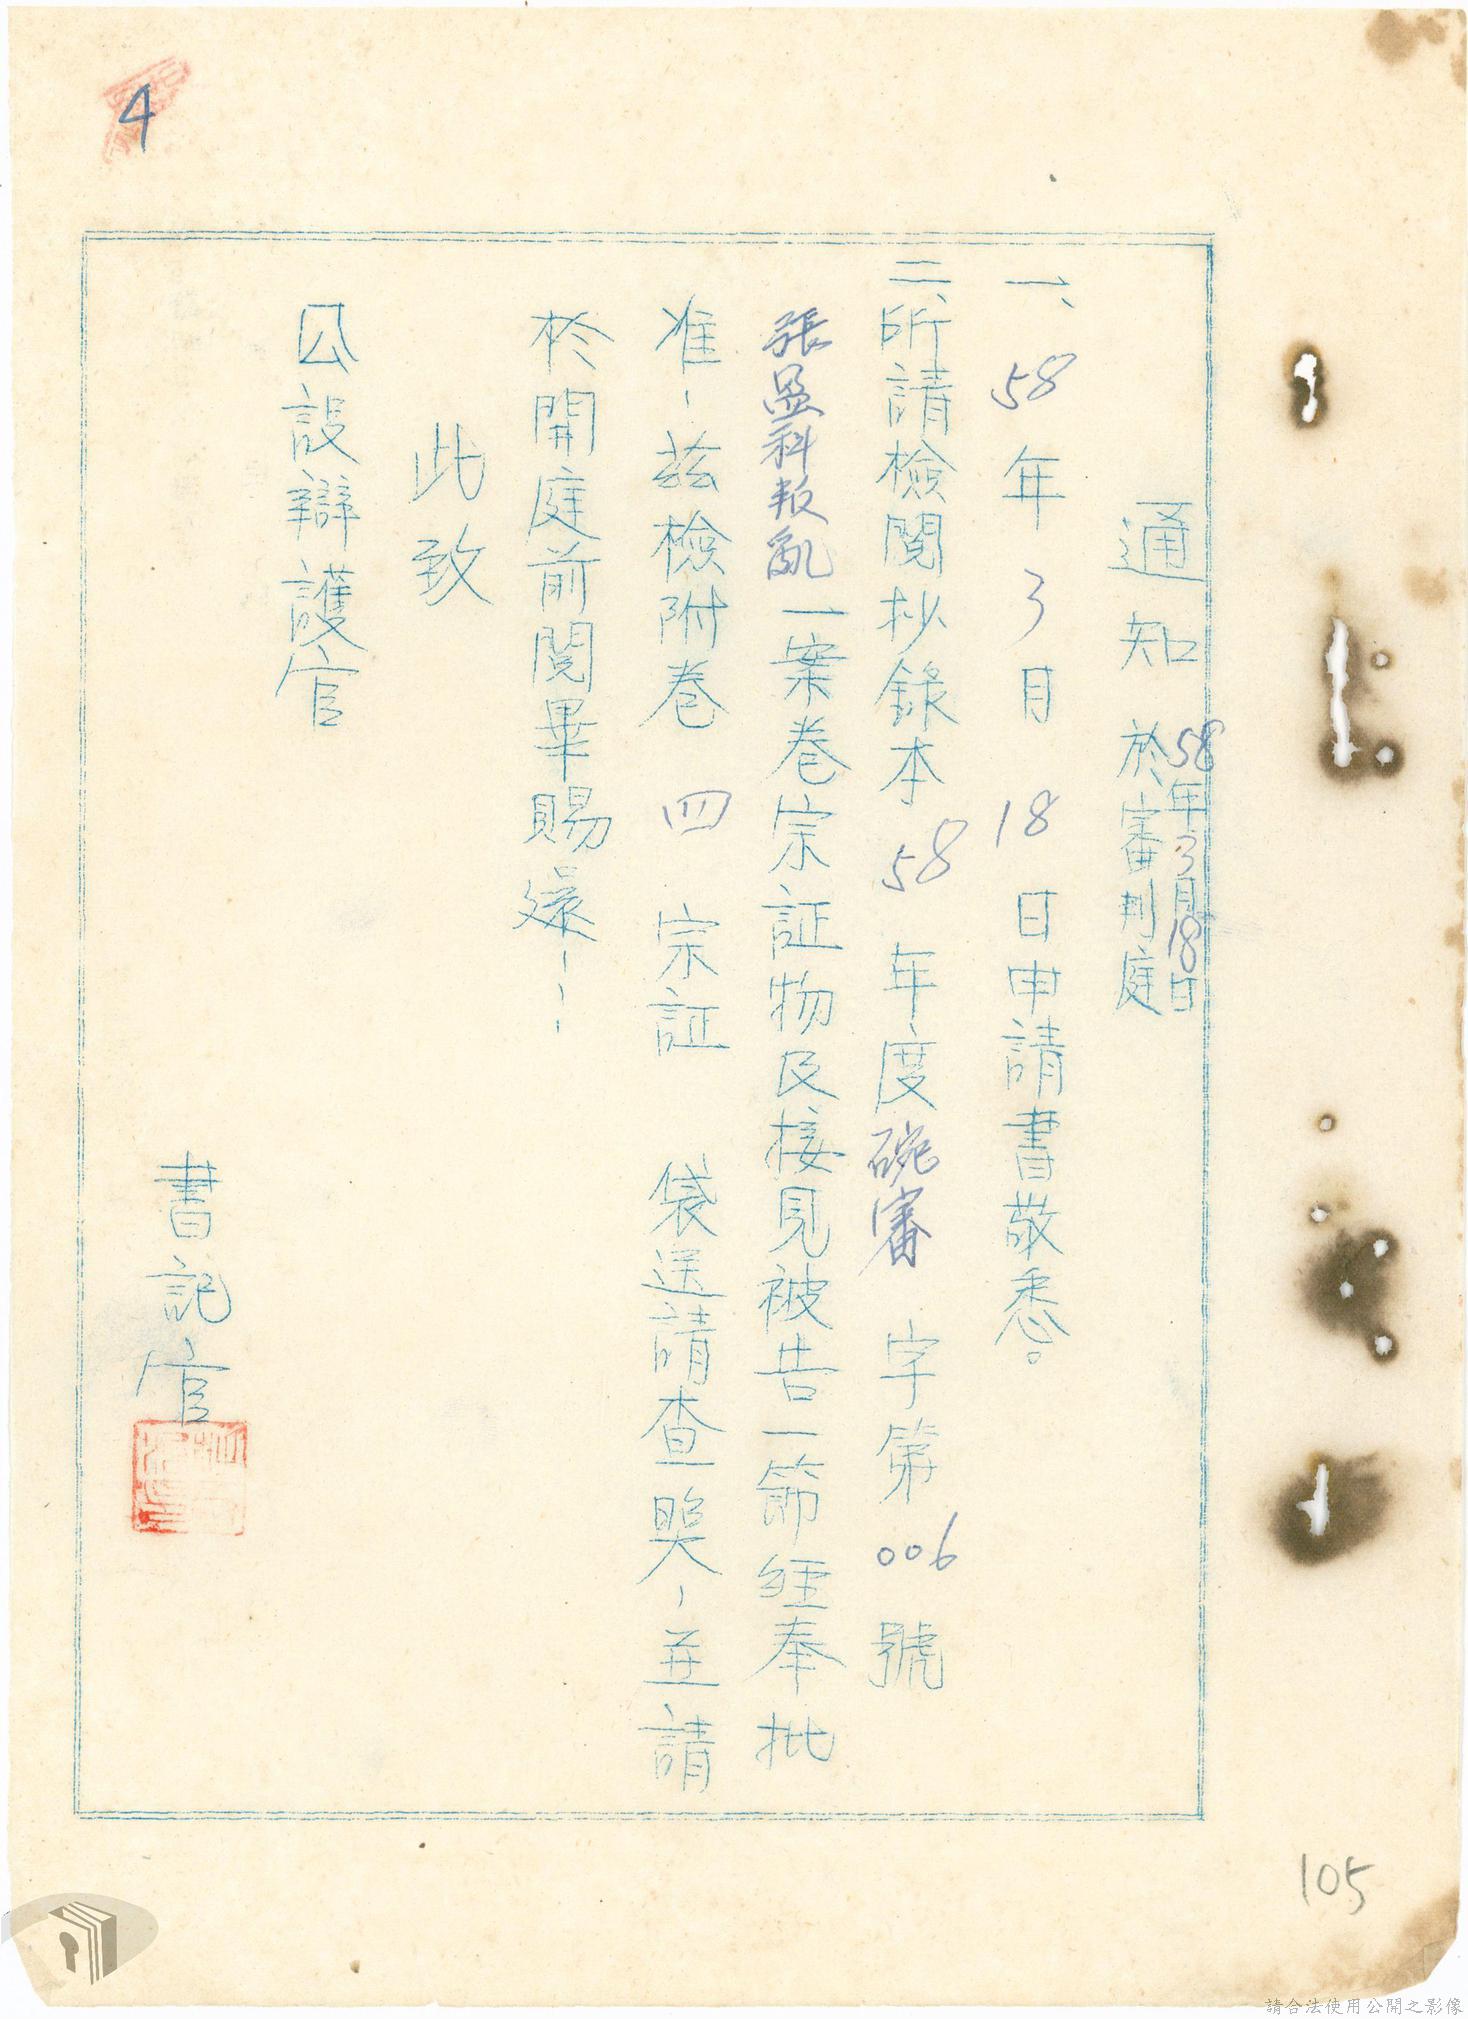 4
通知
58年3月18日
於審判庭
一、58年3月18日申請書敬悉。
二、所請檢閱抄錄本58年度碗審字第006號
張盈科叛亂一案卷宗証物及接見被告一節經奉批
准、茲檢附卷四宗証 袋送請查照、並請
於開庭前閱畢賜還、、、
此致
公設辯護官
書記官
105
請合法使用公開之影像